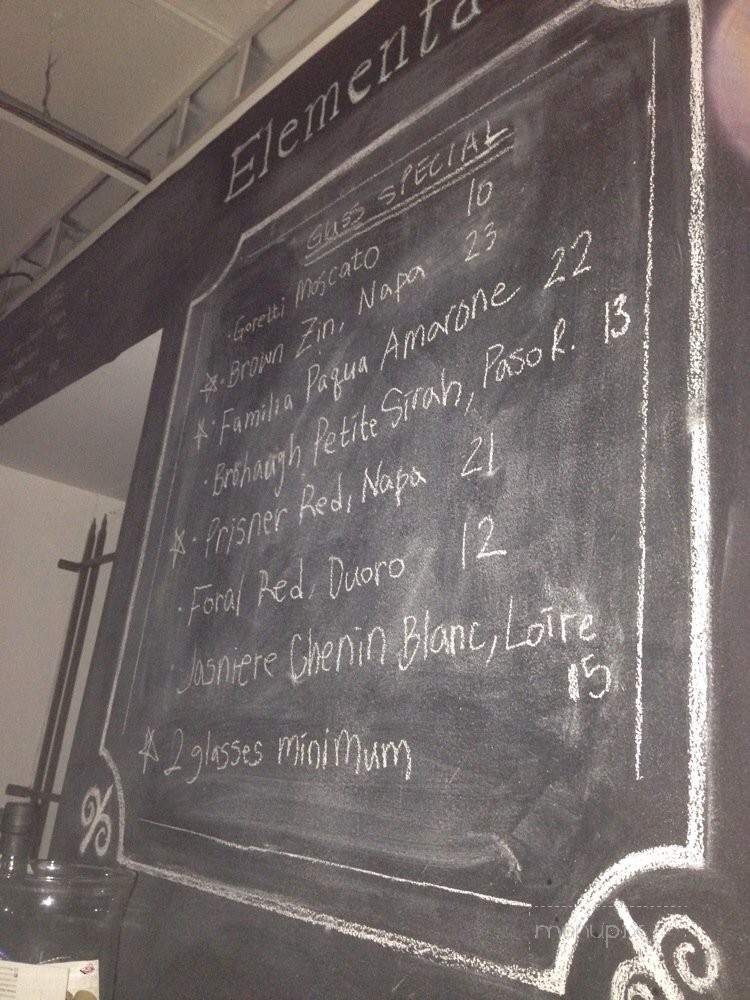 Elementa
GLASS SPECIAL
· Goretti Moscato 10
☆ · Brown Zin, Napa 23
☆ · Familia Pasqua Amarone 22
· Brohaugh Petite Sirah, Paso R. 13
☆ · Prisner Red, Napa 21
· Foral Red, Duoro 12
· Jasniere Chenin Blanc, Loire
15
☆ 2 glasses minimum